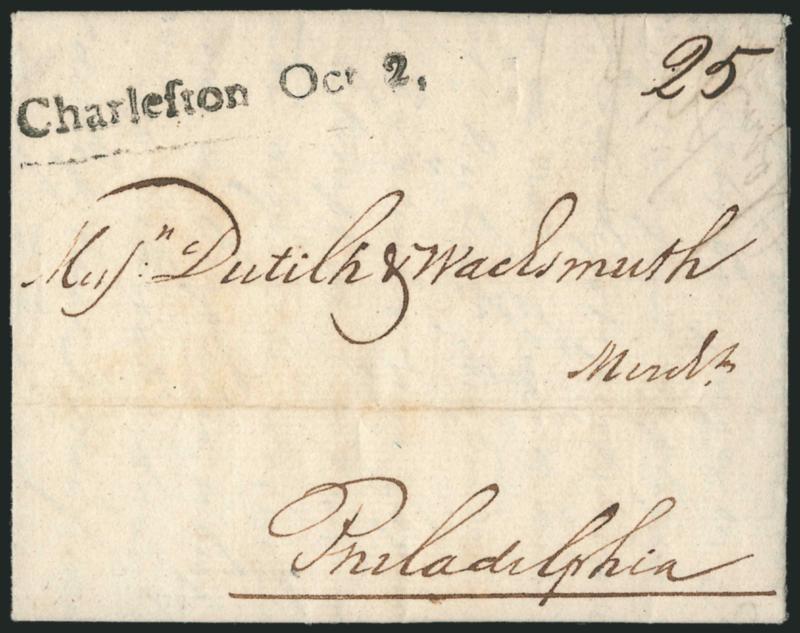 Charleſton Oct 2,
25
Messrs Dutilh & Wachsmuth
Merchts
Philadelphia